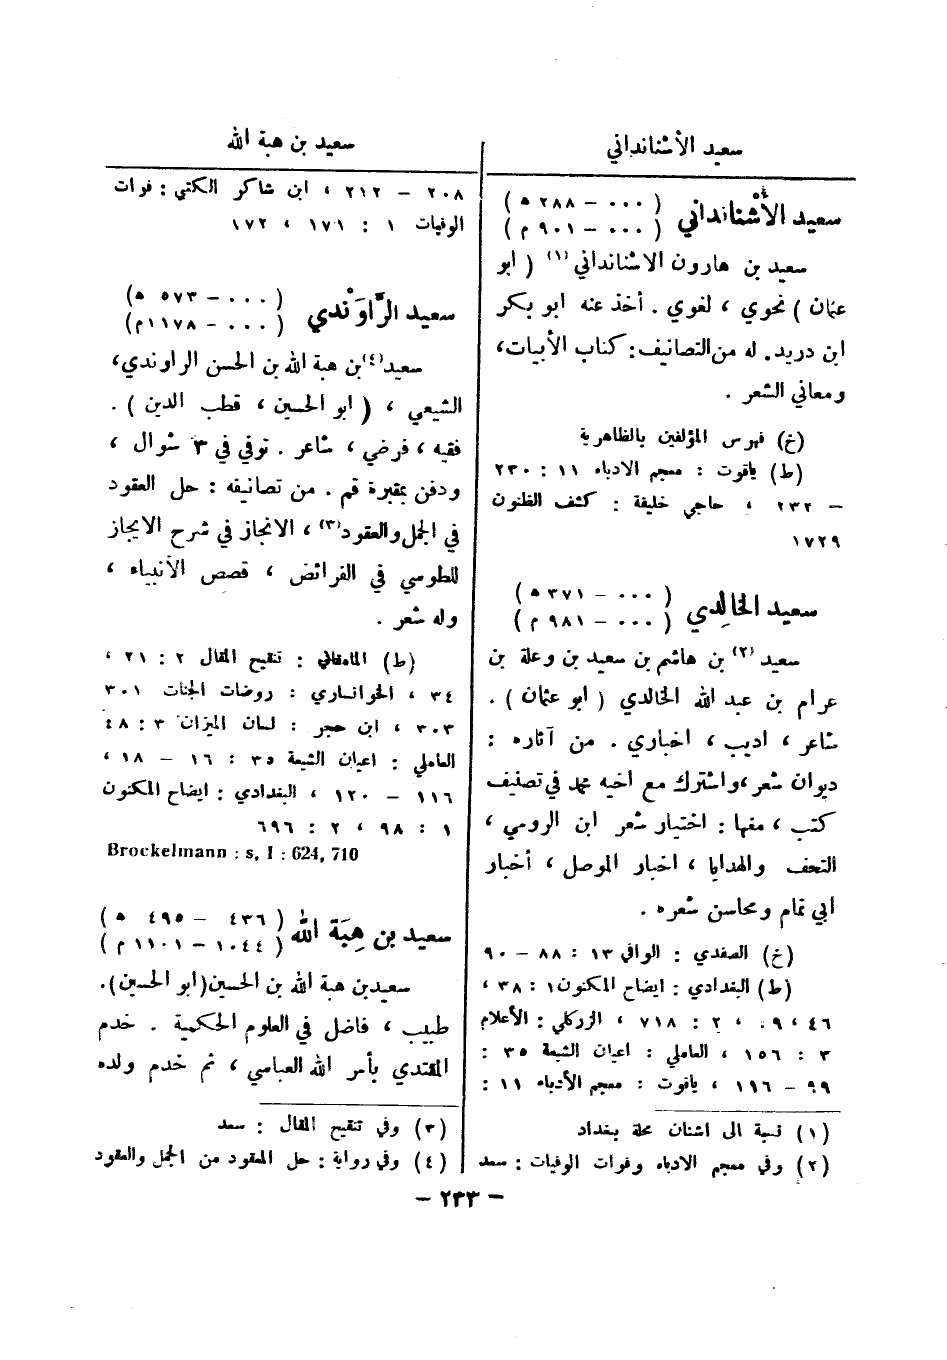 سعيد الأشنانداني
سعيد الأُشنانداني (٠٠٠ – ٢٨٨ ه)
(٠٠٠ – ٩٠١ م)
سعيد بن هارون الاشنانداني (١) (ابو
عثمان) نحوي ، لغوي . أخذ عنه ابو بكر
ابن دريد. له من التصانيف: كتاب الأبيات،
ومعاني الشعر .
(خ) فهرس المؤلفين بالظاهرية
(ط) ياقوت : معجم الادباء ١١ : ٢٣٠
– ٢٣٢ ، حاجي خليفة : كشف الظنون
١٧٢٩
سعيد الخالِدي (٠٠٠ – ٣٧١ ه)
(٠٠٠ – ٩٨١ م)
سعيد (٢) بن هاشم بن سعيد بن وعلة بن
عرام بن عبد الله الخالدي (ابو عثمان) .
شاعر ، اديب ، اخباري . من آثاره :
ديوان شعر ،واشترك مع اخيه محمد في تصنيف
كتب ، منها : اختيار شعر ابن الرومي ،
التحف والهدايا ، اخبار الموصل ، أخبار
ابي تمام ومحاسن شعره .
(خ) الصفدي : الوافي ١٣ : ٨٨ – ٩٠
(ط) البغدادي : ايضاح المكنون ١ : ٣٨ ،
٤٦ ، ٩٠ ، ٢ : ٧١٨ ، الزركلي : الأعلام
٣ : ١٥٦ ، العاملي : اعيان الشيعة ٣٥ :
٩٩ – ١١٦ ، ياقوت : معجم الأدباء ١١ :
(١) نسبة الى اشنان محلة ببغداد
(٢) وفي معجم الادباء وفوات الوفيات : سعد
سعيد بن هبة الله
٢٠٨ – ٢١٢ ، ابن شاكر الكتبي : فوات
الوفيات ١ : ١٧١ ، ١٧٢
سعيد الرَّاوَنْدي (٠٠٠ – ٥٧٣ ه)
(٠٠٠ – ١١٧٨م)
سعيد(٤)بن هبة الله بن الحسن الراوندي،
الشيعي ، (ابو الحسين ، قطب الدين) .
فقيه ، فرضي ، شاعر . توفي في ٣ شوال ،
ودفن بمقبرة قم . من تصانيفه : حل العقود
في الجمل والعقود(٣) ، الانجاز في شرح الايجاز
للطوسي في الفرائض ، قصص الأنبياء ،
وله شعر .
(ط) المامقاني : تنقيح المقال ٢ : ٢١ ،
٣٤ ، الخوانساري : روضات الجنات ٣٠١
٣٠٣ ، ابن حجر : لسان الميزان ٣ : ٤٨
العاملي : اعيان الشيعة ٣٥ : ١٦ – ١٨ ،
١١٦ – ١٢٠ ، البغدادي : ايضاح المكنون
١ : ٩٨ ، ٢ : ٦٩٦
Brockelmann : s, I : 624, 710
سعيد بن هِبَة الله (٤٣٦ – ٤٩٥ ه)
(١٠٤٤ – ١١٠١ م)
سعيدبن هبة الله بن الحسين(ابو الحسين).
طبيب ، فاضل في العلوم الحكمية . خدم
المقتدي بأمر الله العباسي ، ثم خدم ولده
(٣) وفي تنقيح المقال : سعد
(٤) وفي رواية : حل المعقود من الجمل والعقود
– ٢٣٣ –